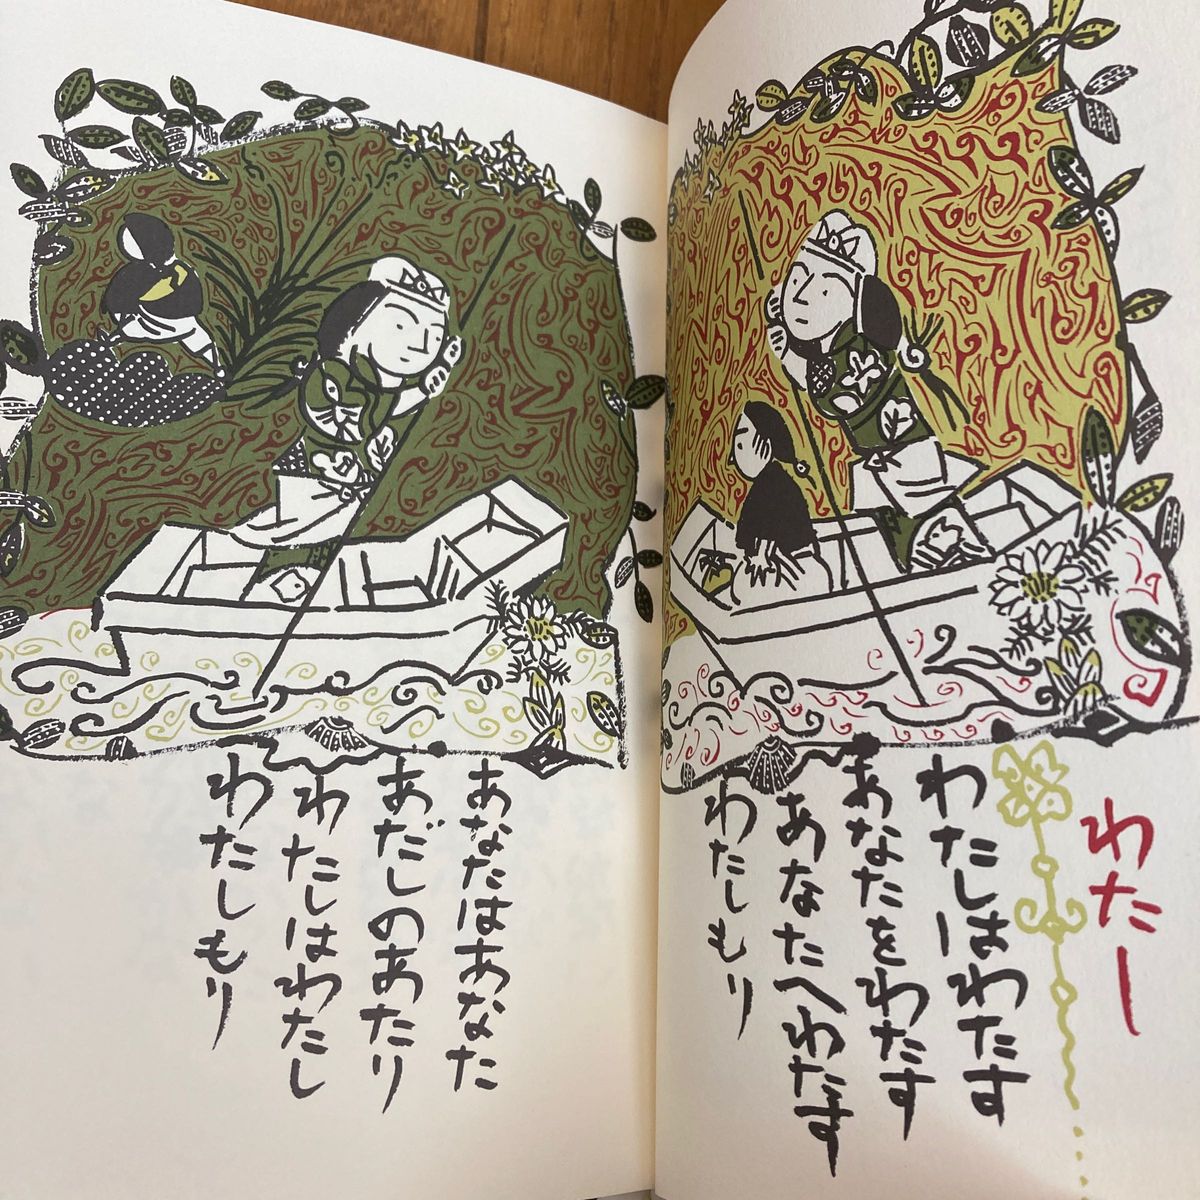 わたし
わたしはわたす
あなたをわたす
あなたへわたす
わたしもり
あなたはあなた
あだしのあたり
わたしはわたし
わたしもり